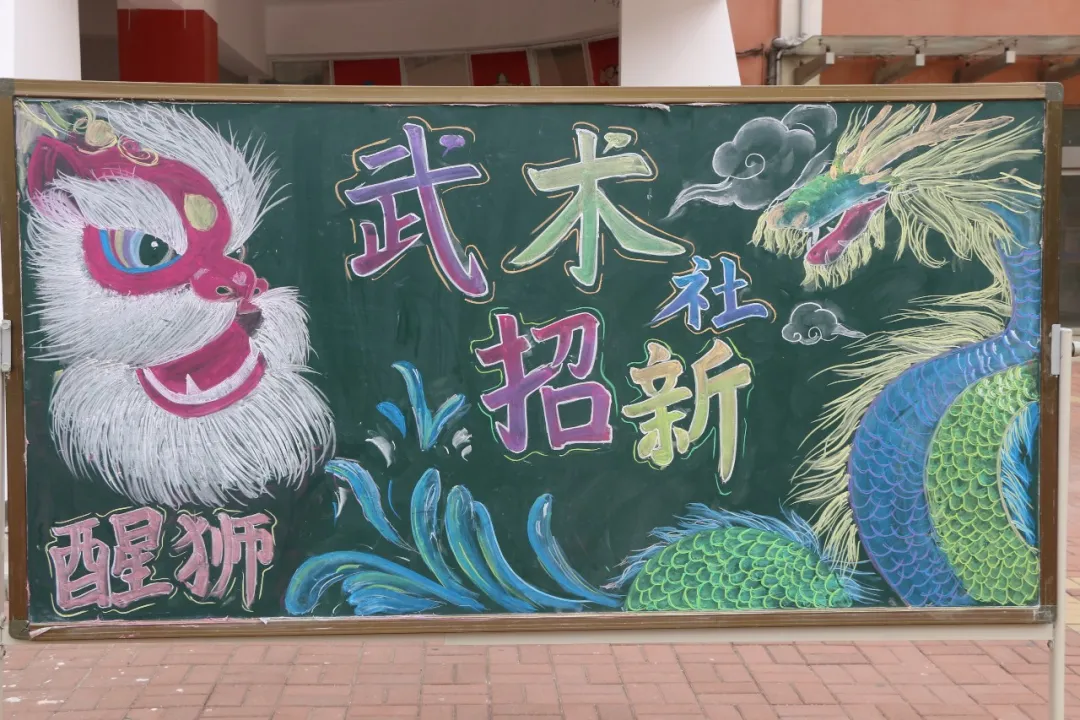 武术社
招新
醒狮